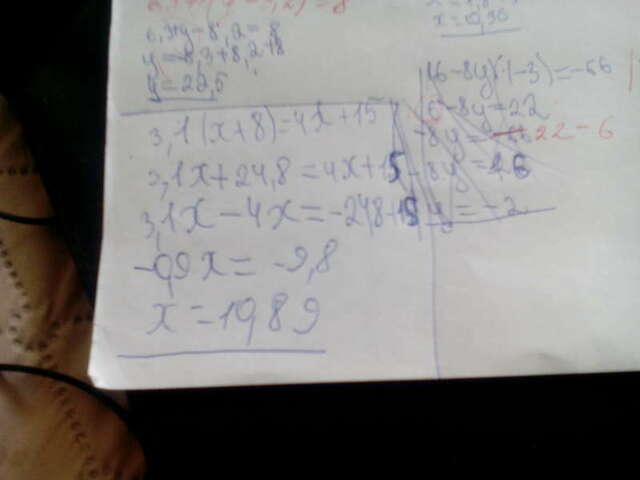 6,3+y-8,2=8
y=-6,3+8,2+8
y=22,5
x=10,30
(6-8y)·(-3)=-66
6-8y=22
-8y=22-6
-8y=16
y=-2
3,1(x+8)=4x+15
3,1x+24,8=4x+15
3,1x-4x=-24,8+15
-0,9x=-9,8
x=10,89